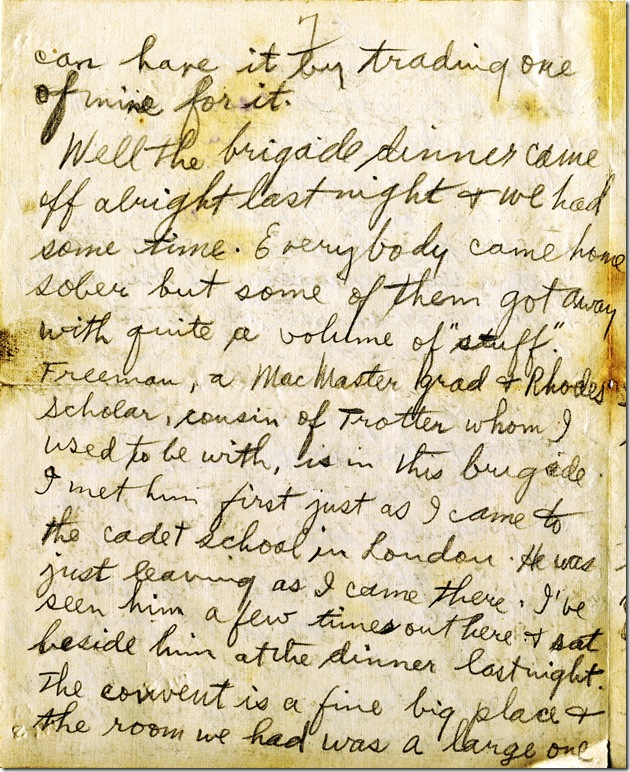 7
can have it by trading one
of mine for it.
Well the brigade dinner came
off alright last night & we had
some time. Everybody came home
sober but some of them got away
with quite a volume of "stuff".
Freeman, a MacMaster grad & Rhodes
scholar, cousin of Trotter whom I
used to be with, is in this brigade.
I met him first just as I came to
the cadet school in London. He was
just leaving as I came there. I've
seen him a few times out here & sat
beside him at the dinner last night.
The convent is a fine big place &
the room we had was a large one